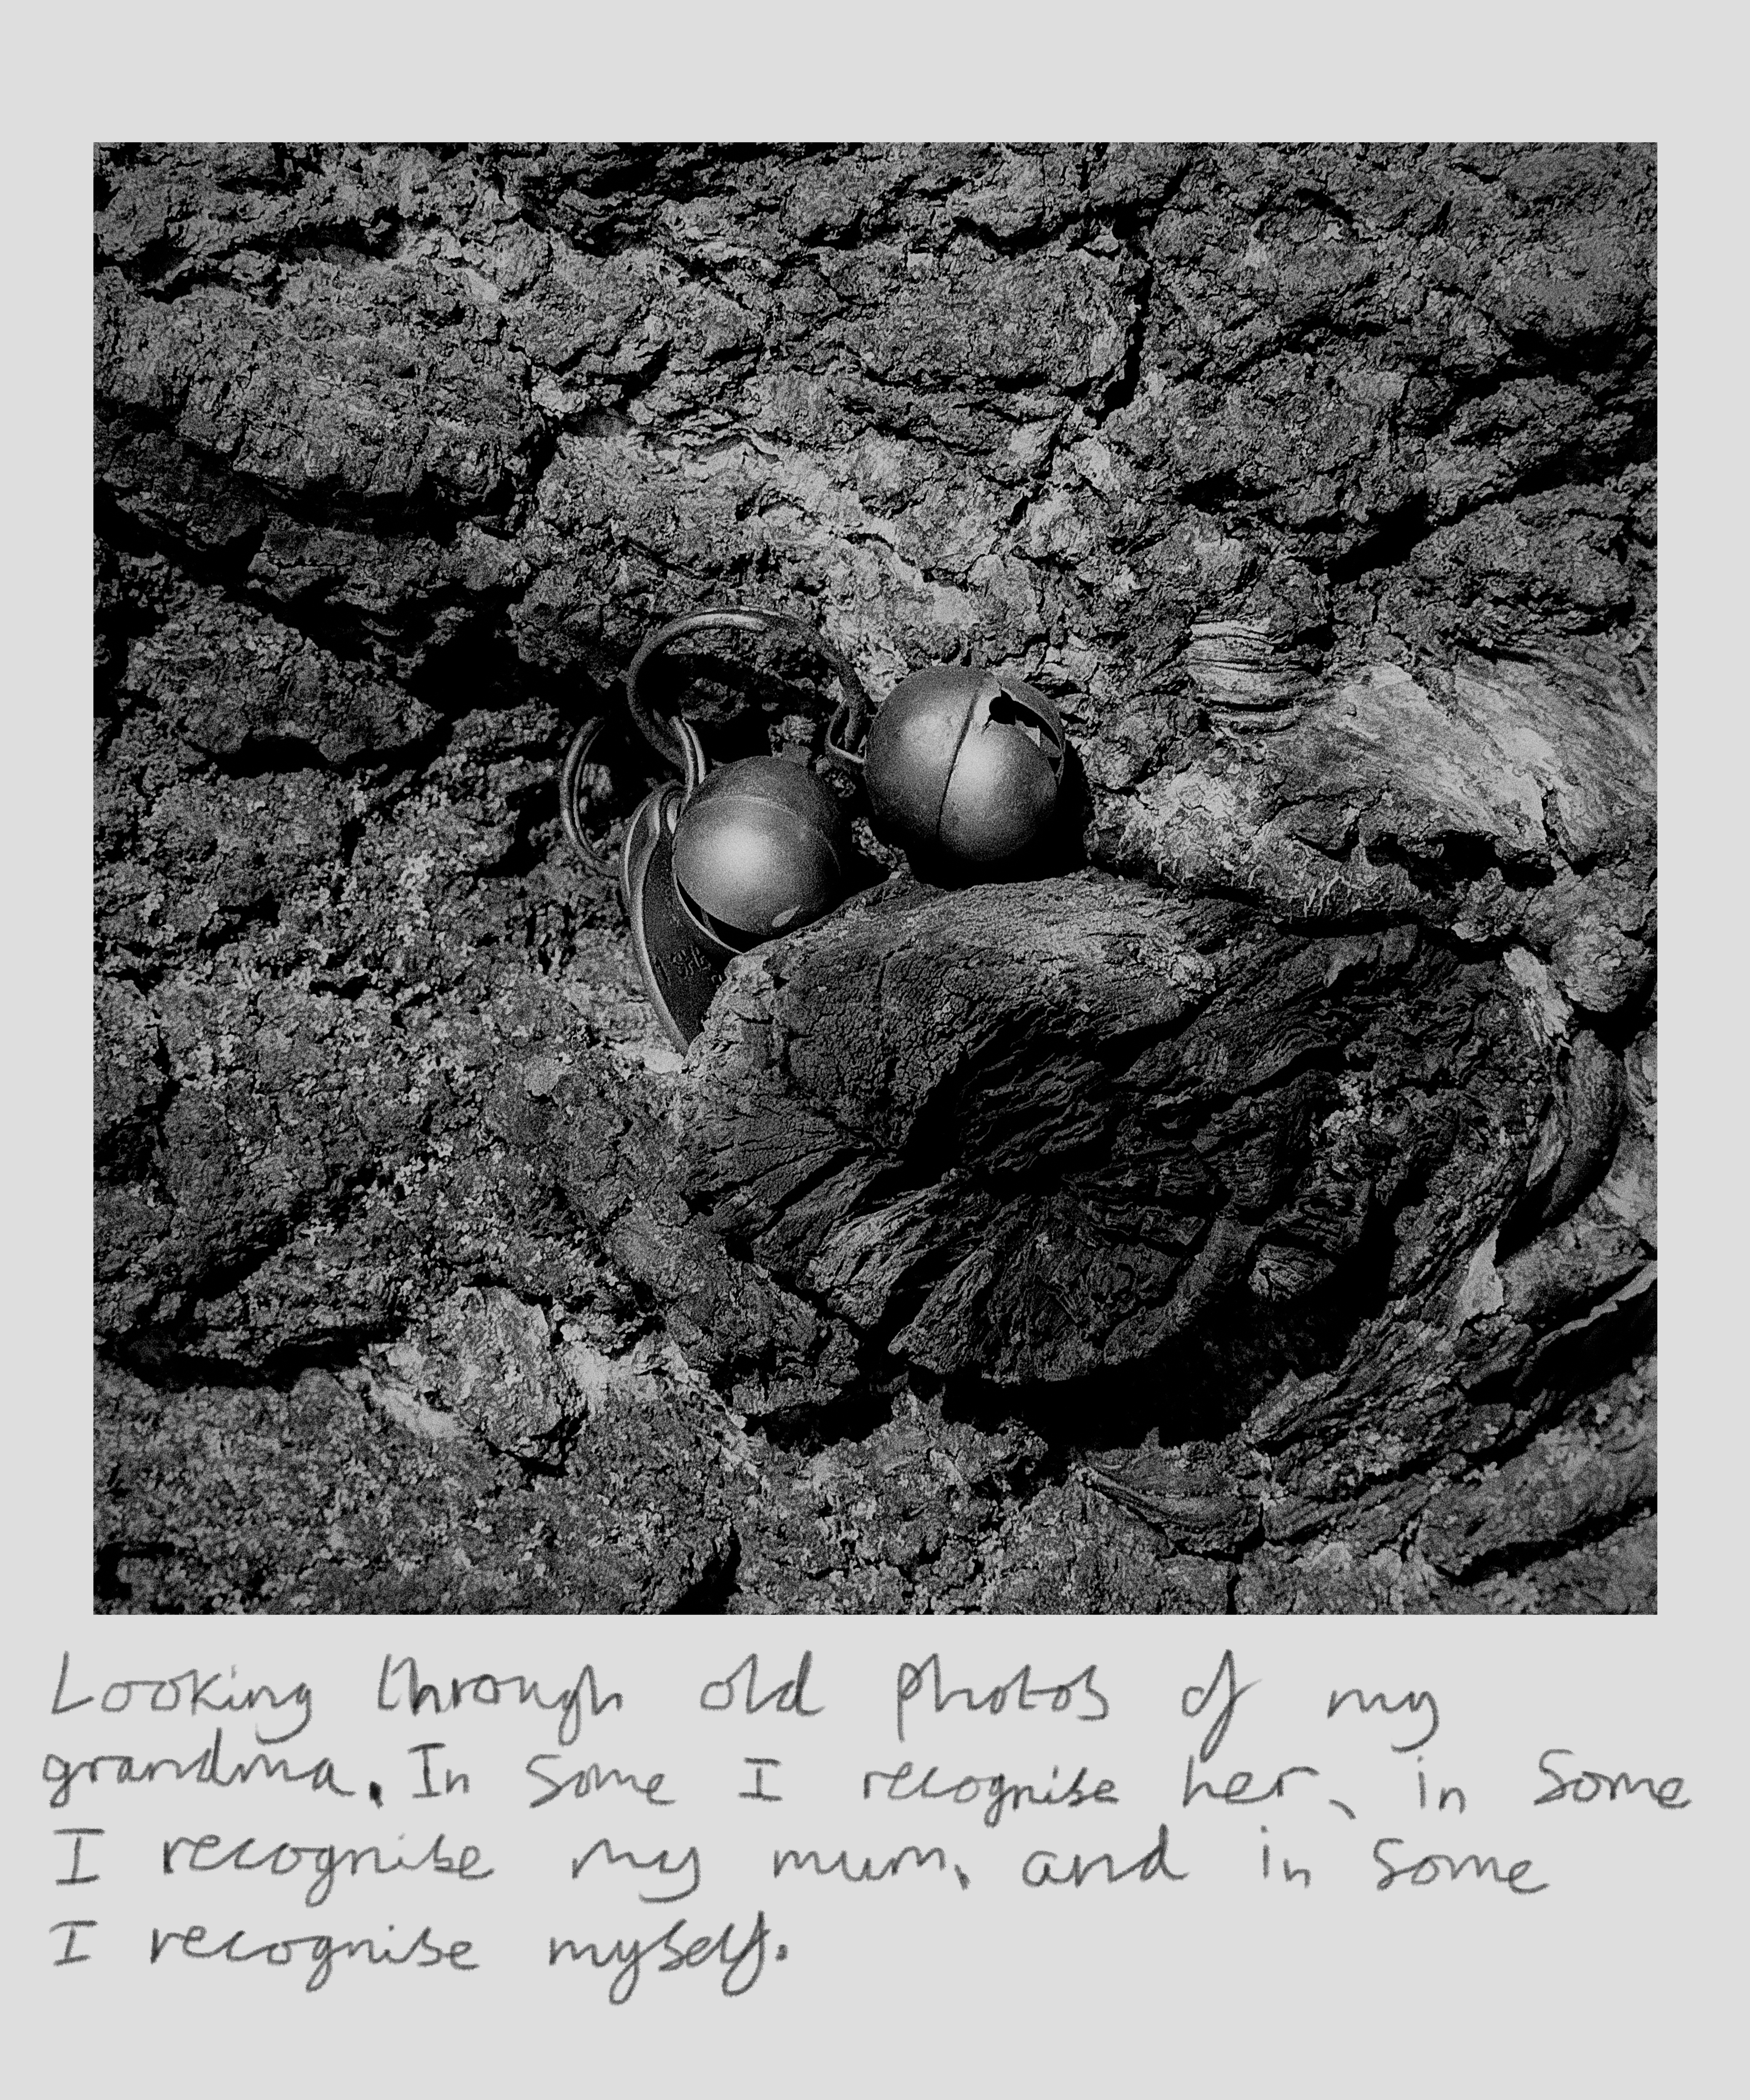 Looking through old photos of my
grandma. In some I recognise her, in some
I recognise my mum, and in some
I recognise myself.